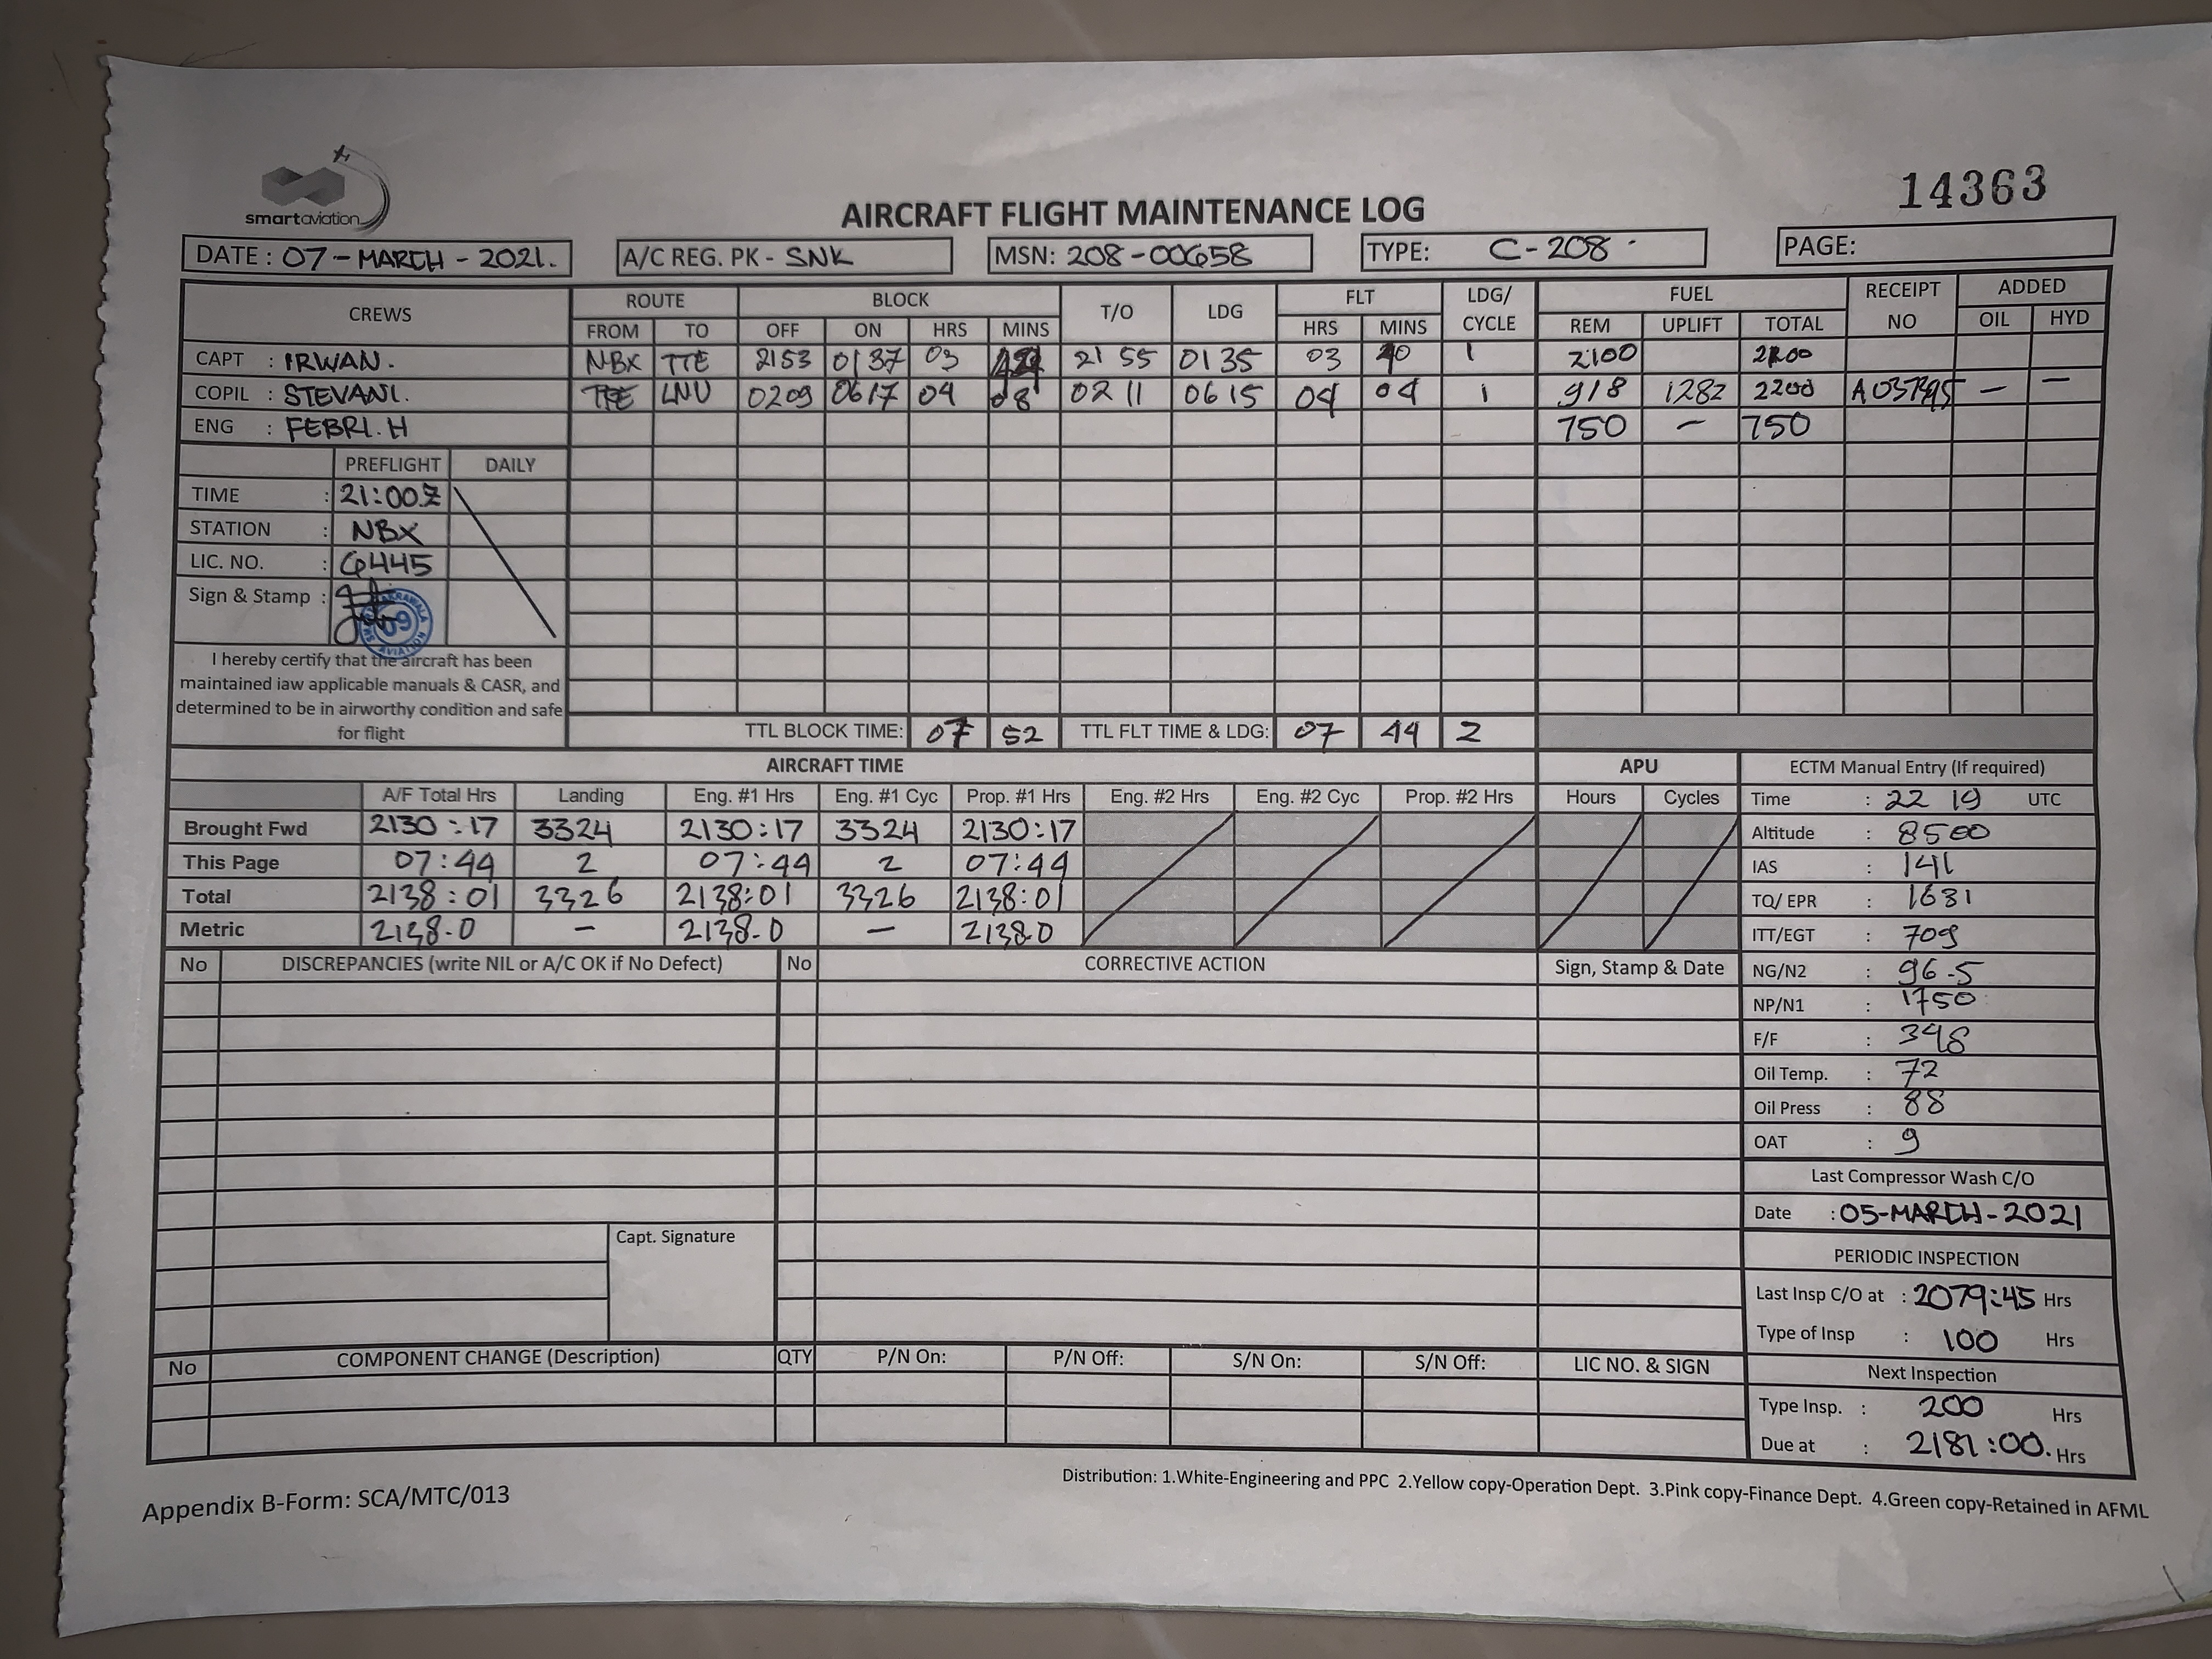 smartaviation
14363
AIRCRAFT FLIGHT MAINTENANCE LOG
DATE : 07-MARCH-2021. A/C REG. PK - SNK MSN: 208-00658 TYPE: C-208 PAGE:
CREWS ROUTE BLOCK T/O LDG FLT LDG/ CYCLE FUEL RECEIPT NO ADDED
FROM TO OFF ON HRS MINS HRS MINS REM UPLIFT TOTAL OIL HYD
CAPT : IRWAN. NBX TTE 2153 0137 03 21 55 0135 03 40 1 2100
COPIL : STEVANI. TTE LNU 0209 0617 04 08 02 11 06 15 04 04 1 918 1282 2200 — —
ENG : FEBRI. H 750 — 750
PREFLIGHT DAILY
TIME : 21:00Z
STATION : NBX
LIC. NO. : 6445
Sign & Stamp :
09
AVIATION
I hereby certify that the aircraft has been
maintained iaw applicable manuals & CASR, and
determined to be in airworthy condition and safe
for flight
TTL BLOCK TIME: 07 52 TTL FLT TIME & LDG: 07 44 2
AIRCRAFT TIME APU ECTM Manual Entry (If required)
A/F Total Hrs Landing Eng. #1 Hrs Eng. #1 Cyc Prop. #1 Hrs Eng. #2 Hrs Eng. #2 Cyc Prop. #2 Hrs Hours Cycles
Brought Fwd 2130:17 3324 2130:17 3324 2130:17
This Page 07:44 2 07:44 2 07:44
Total 2138:01 3326 2138:01 3326 2138:01
Metric 2138.0 — 2138.0 — 2138.0
Time : 22 19 UTC
Altitude : 8500
IAS : 141
TQ/ EPR : 1631
ITT/EGT : 709
NG/N2 : 96.5
NP/N1 : 1750
F/F : 348
Oil Temp. : 72
Oil Press : 88
OAT : 9
Last Compressor Wash C/O
Date : 05-MARCH-2021
PERIODIC INSPECTION
Last Insp C/O at : 2079:45 Hrs
Type of Insp : 100 Hrs
Next Inspection
Type Insp. : 200 Hrs
Due at : 2181:00. Hrs
No DISCREPANCIES (write NIL or A/C OK if No Defect) No CORRECTIVE ACTION Sign, Stamp & Date
Capt. Signature
No COMPONENT CHANGE (Description) QTY P/N On: P/N Off: S/N On: S/N Off: LIC NO. & SIGN
Distribution: 1.White-Engineering and PPC 2.Yellow copy-Operation Dept. 3.Pink copy-Finance Dept. 4.Green copy-Retained in AFML
Appendix B-Form: SCA/MTC/013